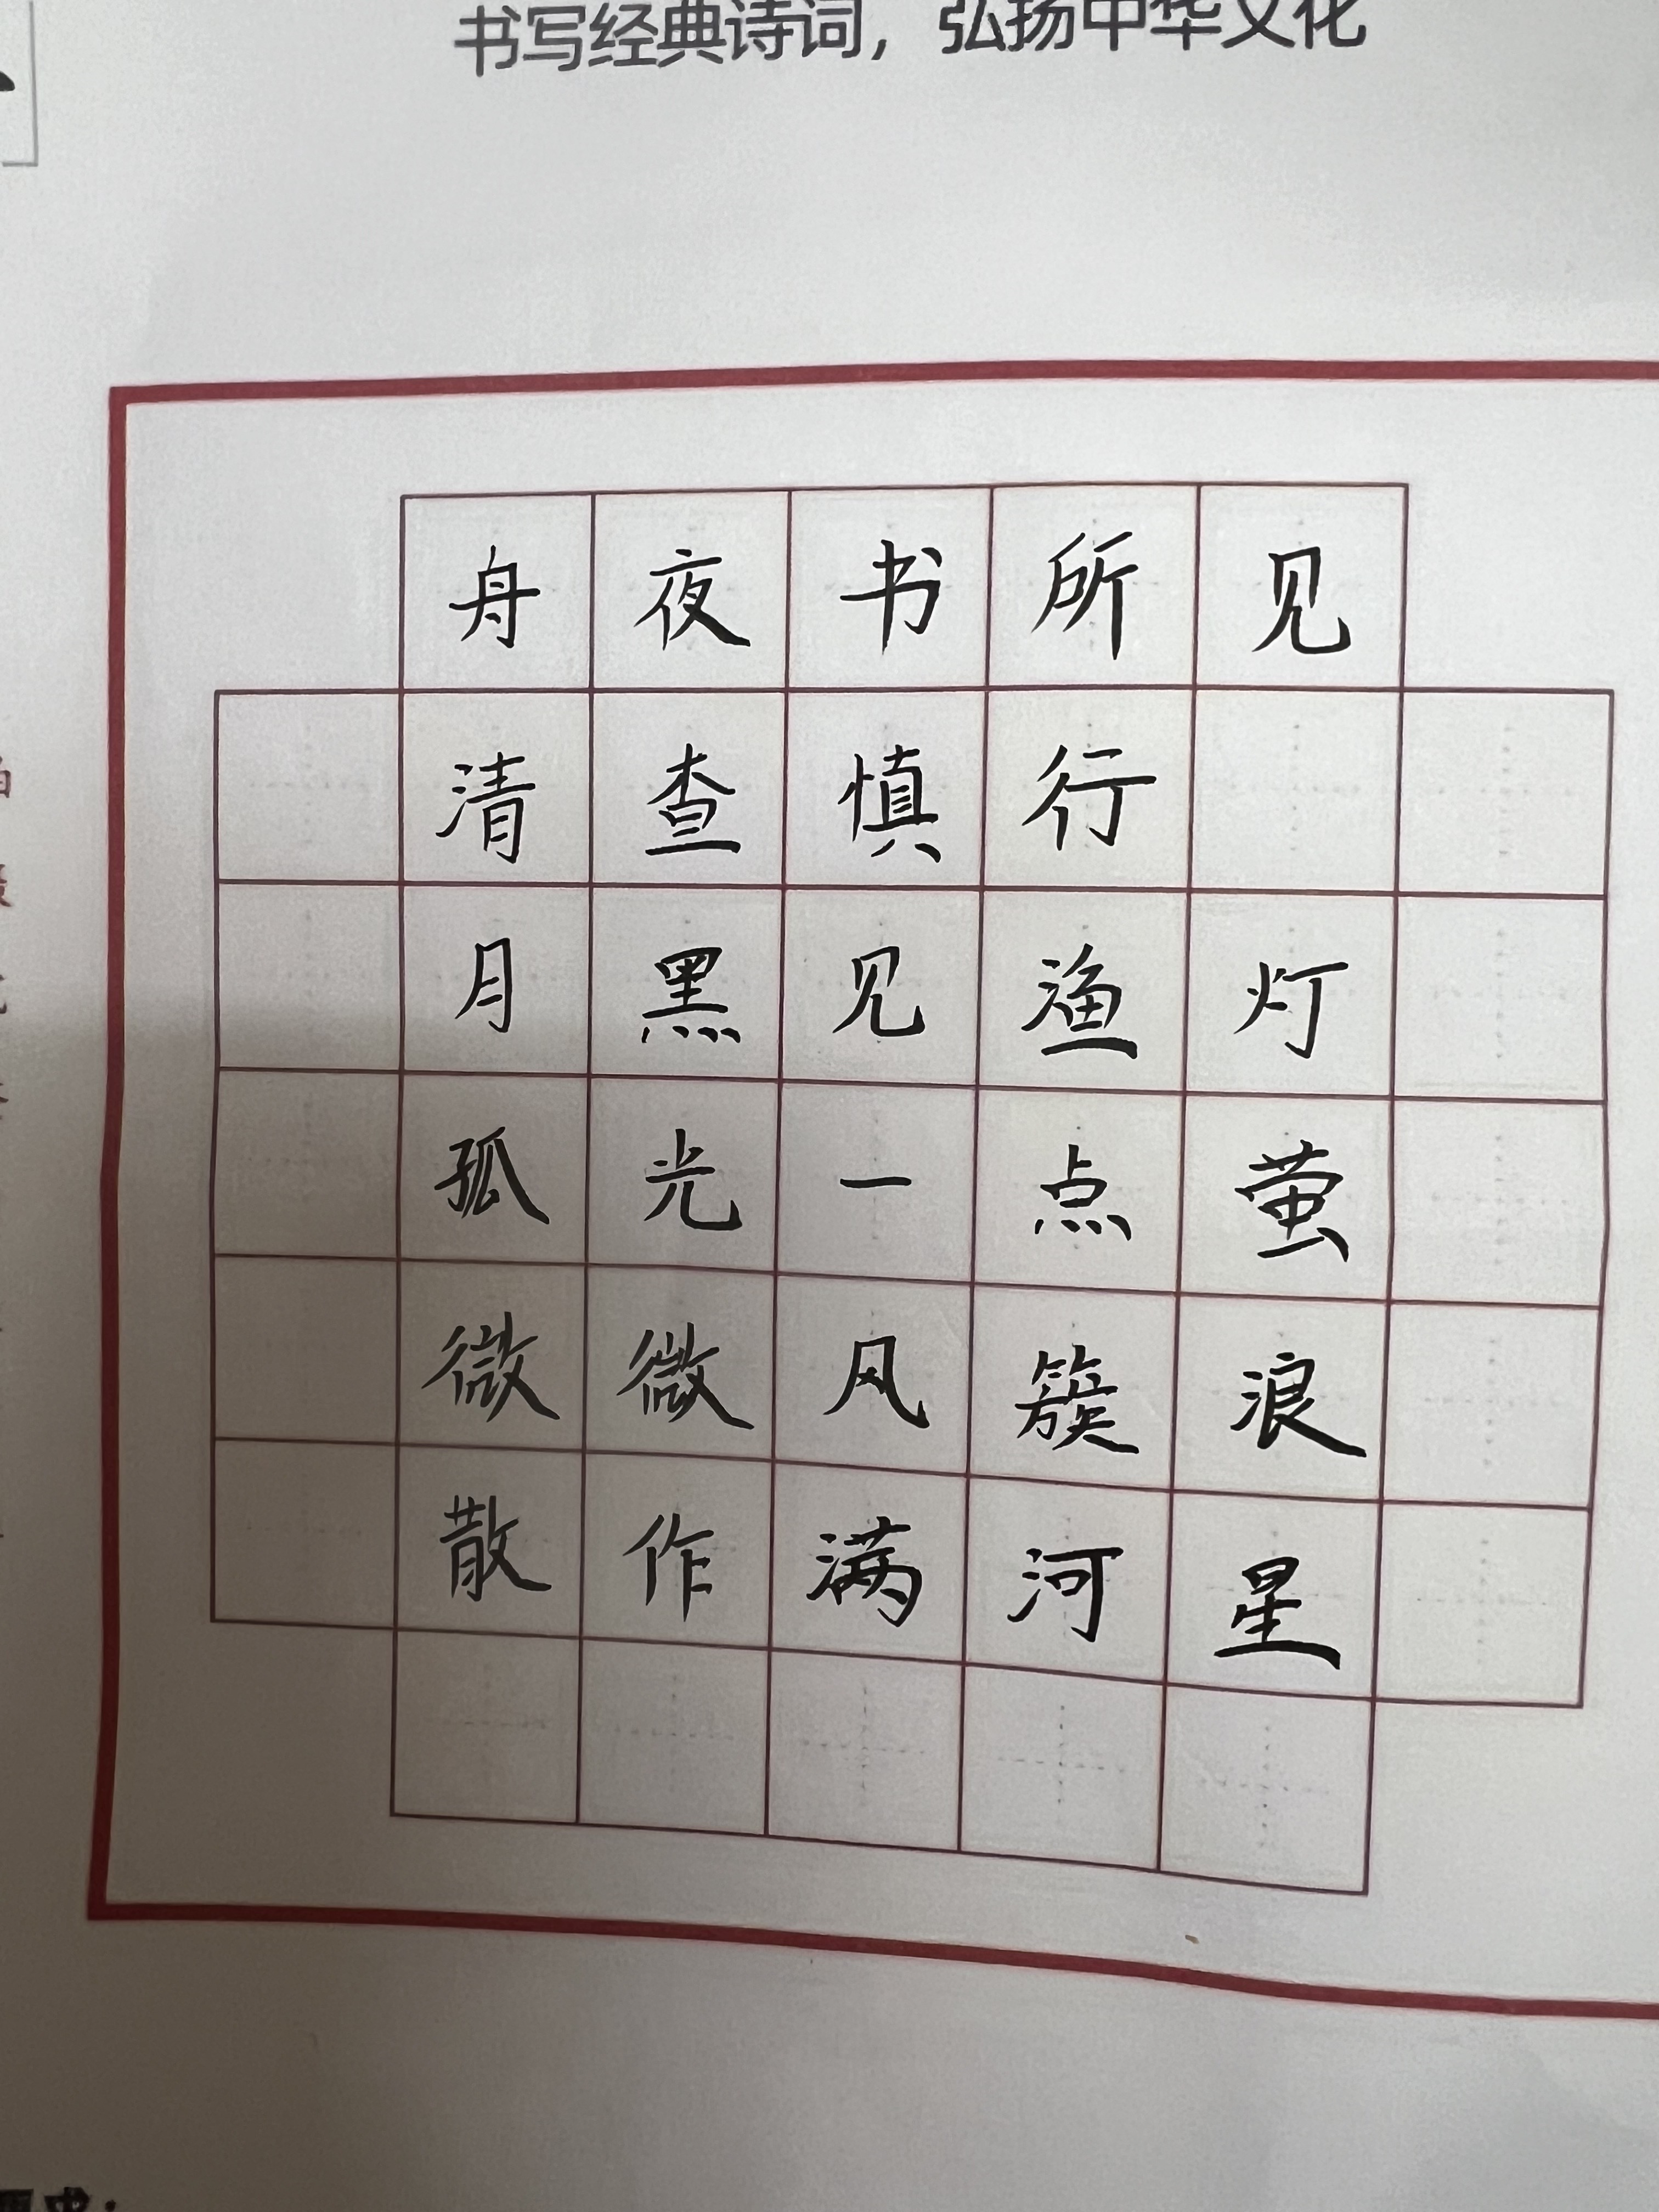 书写经典诗词，弘扬中华文化
舟夜书所见
清查慎行
月黑见渔灯
孤光一点萤
微微风簇浪
散作满河星